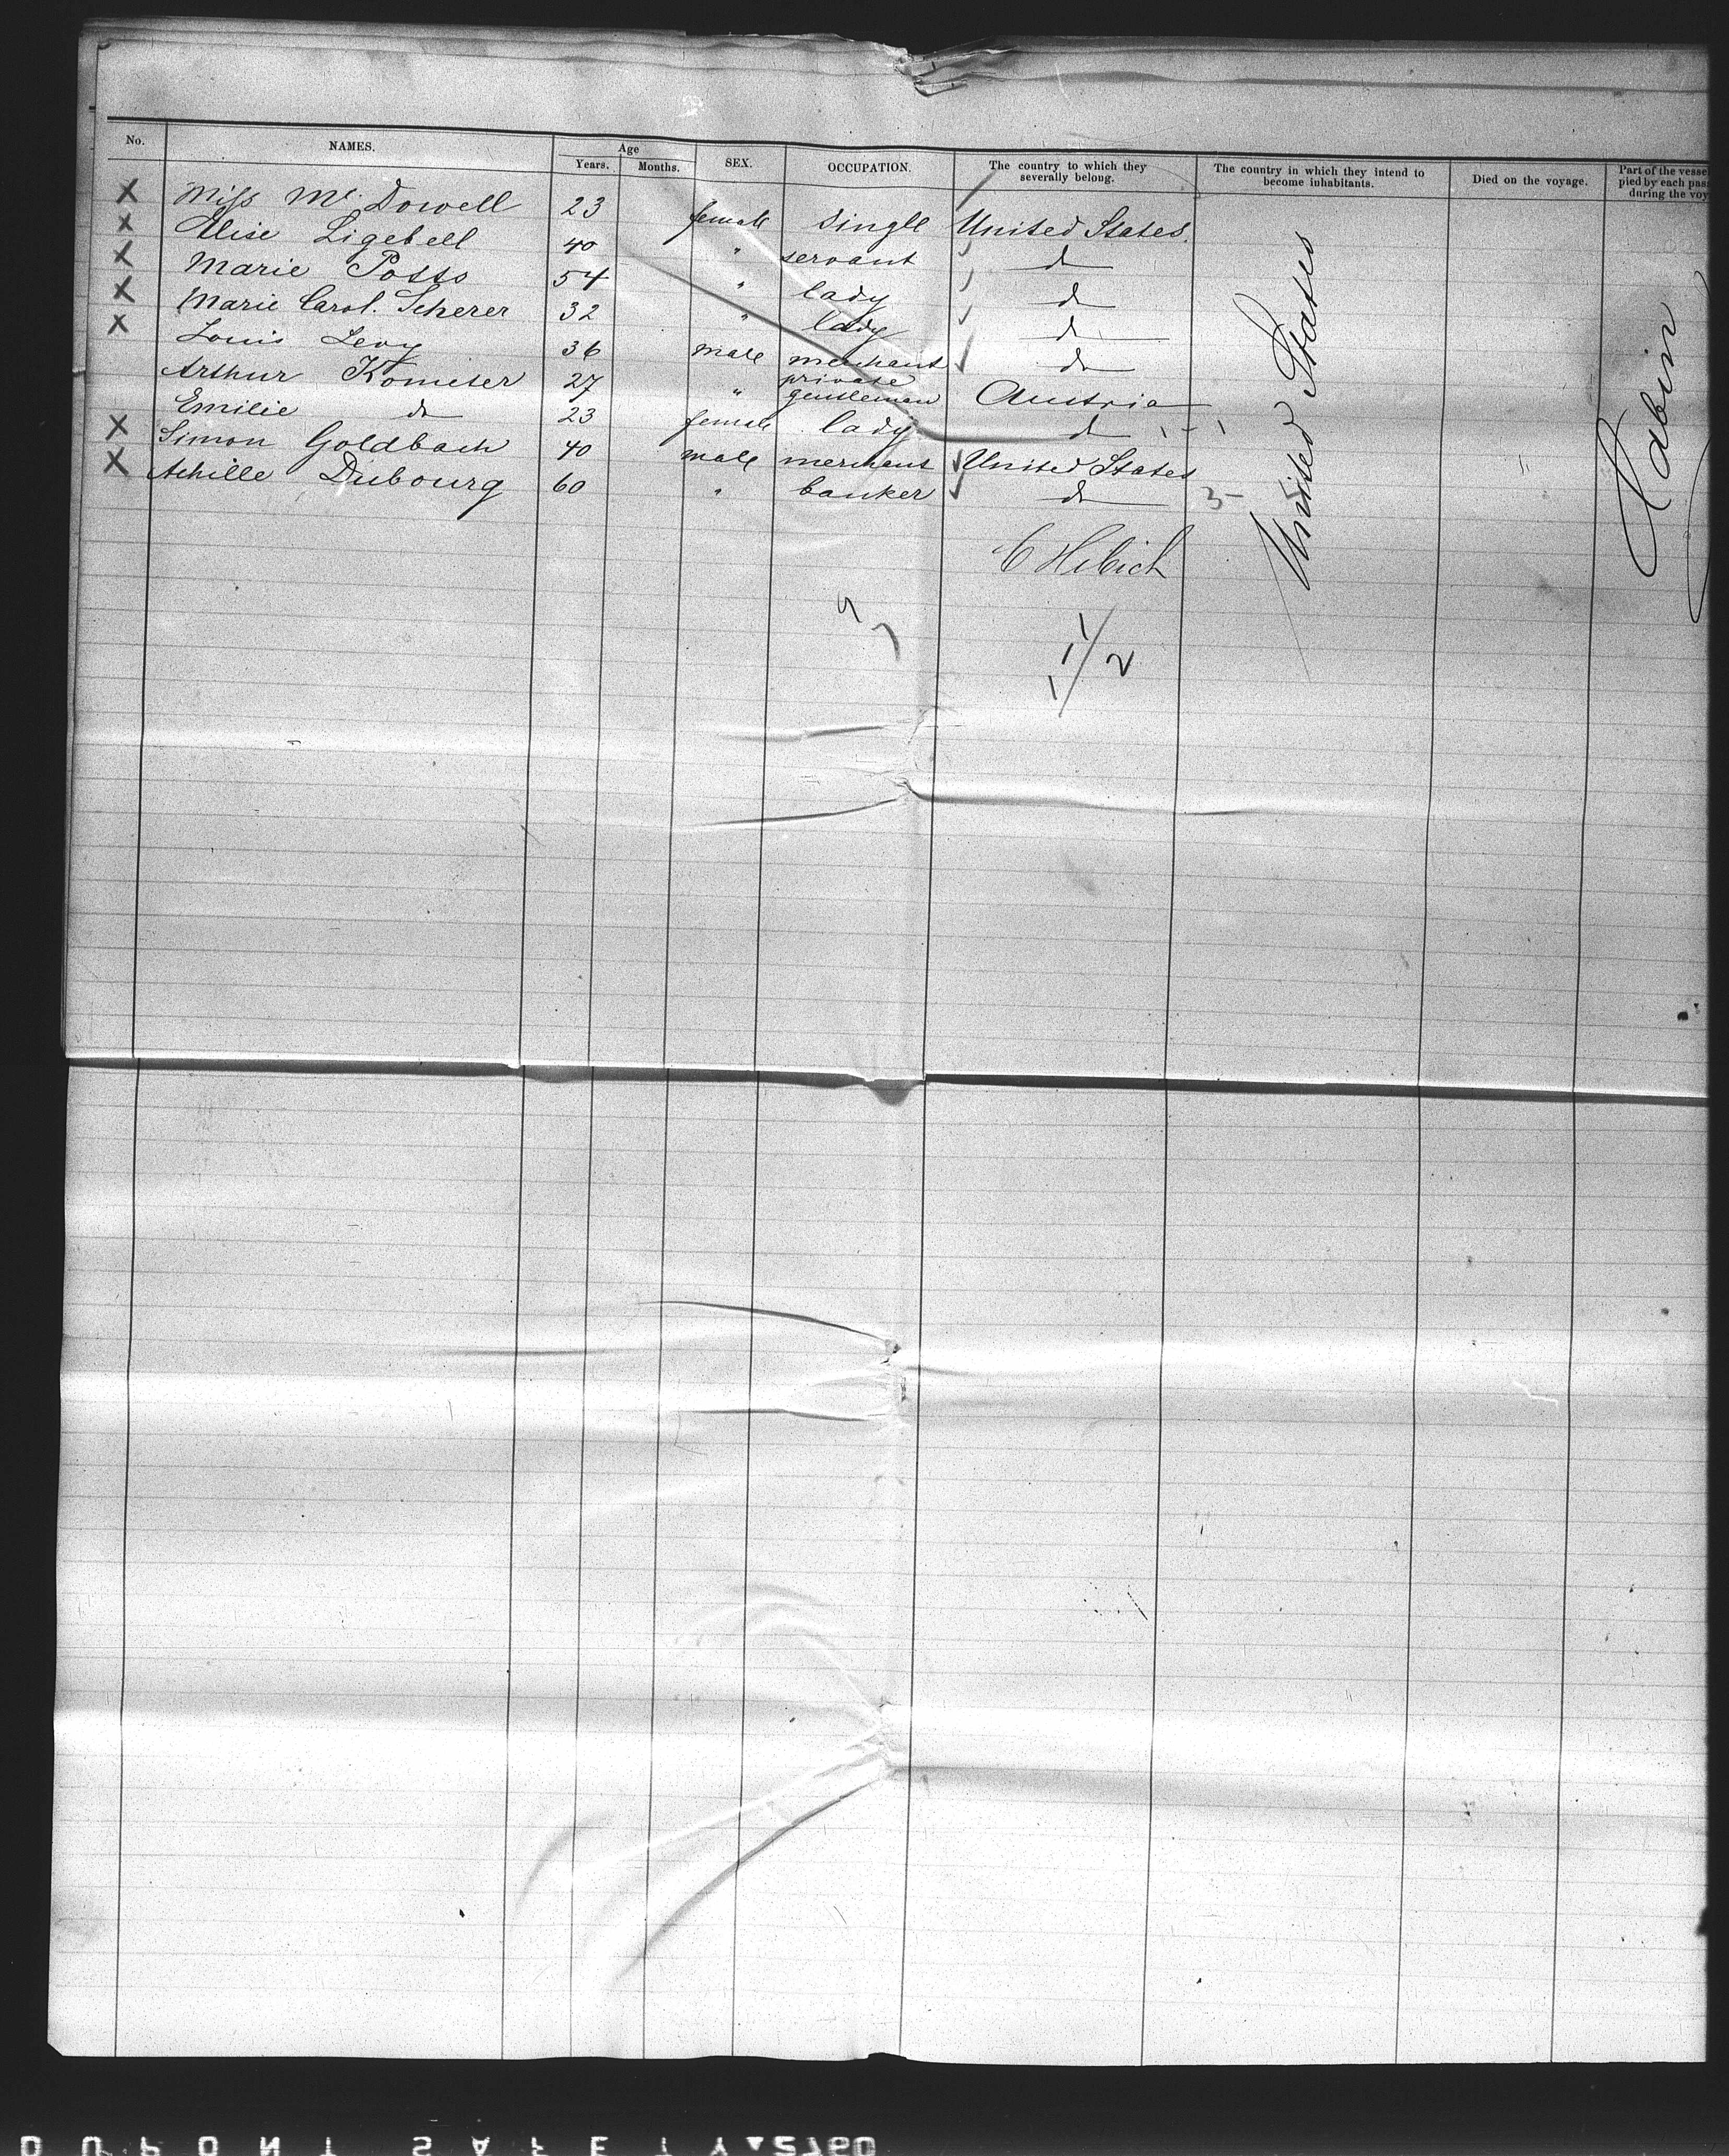 No. NAMES. Age Years. Months. SEX. OCCUPATION. The country to which they severally belong. The country in which they intend to become inhabitants. Died on the voyage. Part of the vesse pied by each pas during the voy
X Miss Mc. Dowell 23 female single United States.
X Alise Ligebell 40 " servant do
X Marie Potts 54 " lady do
X Marie Carol. Scherer 32 " lady do
X Louis Levy 36 male merchant do
Arthur Komiter 27 " private gentleman Austria
Emilie do 23 female lady do 1 - 1
X Simon Goldbach 40 male merchant United States "
X Achille Dubourg 60 " banker do 3-
United States
Cabin
C Hebich
1
1/2
1
DUPONT SAFETY 2760